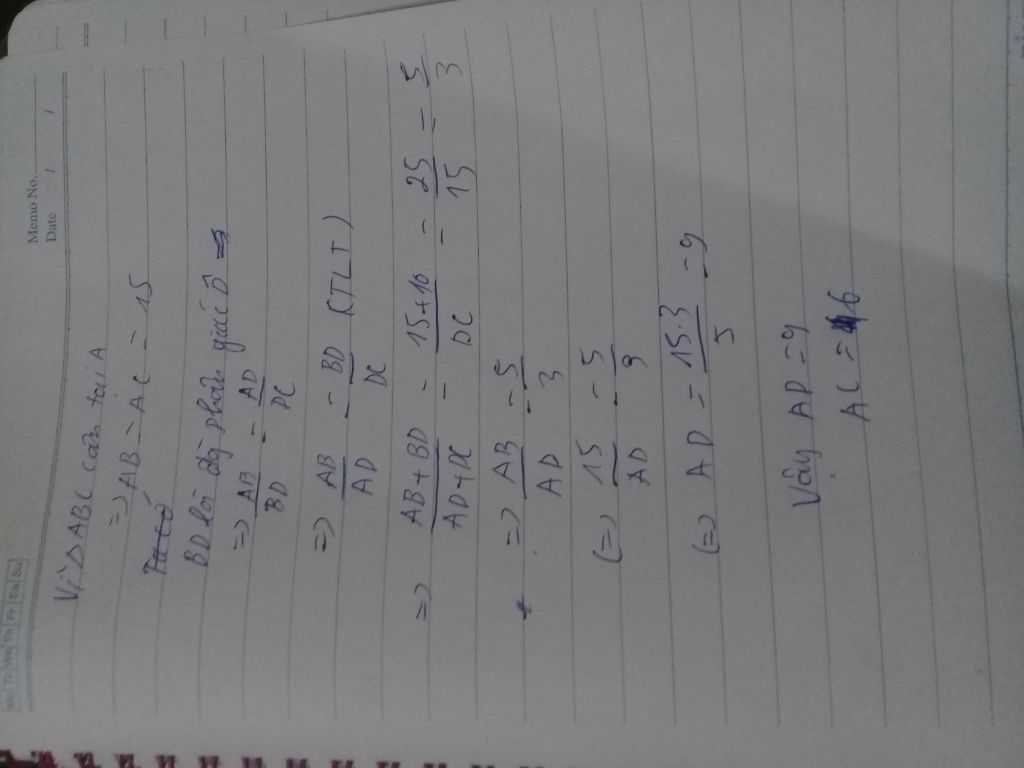 Memo No.
Date / /
Mo Tu We Th Fr Sa Su
Vì △ABC cân tại A
=> AB = AC = 15
Ta có
BD là đg phân giác D̂ =>
=> AB/BD = AD/DC
=> AB/AD = BD/DC (TLT)
=> AB+BD/AD+DC = 15+10/DC = 25/15 = 5/3
=> AB/AD = 5/3
(=> 15/AD = 5/3
(=> AD = 15.3/5 = 9
Vậy AD = 9
AC = 6